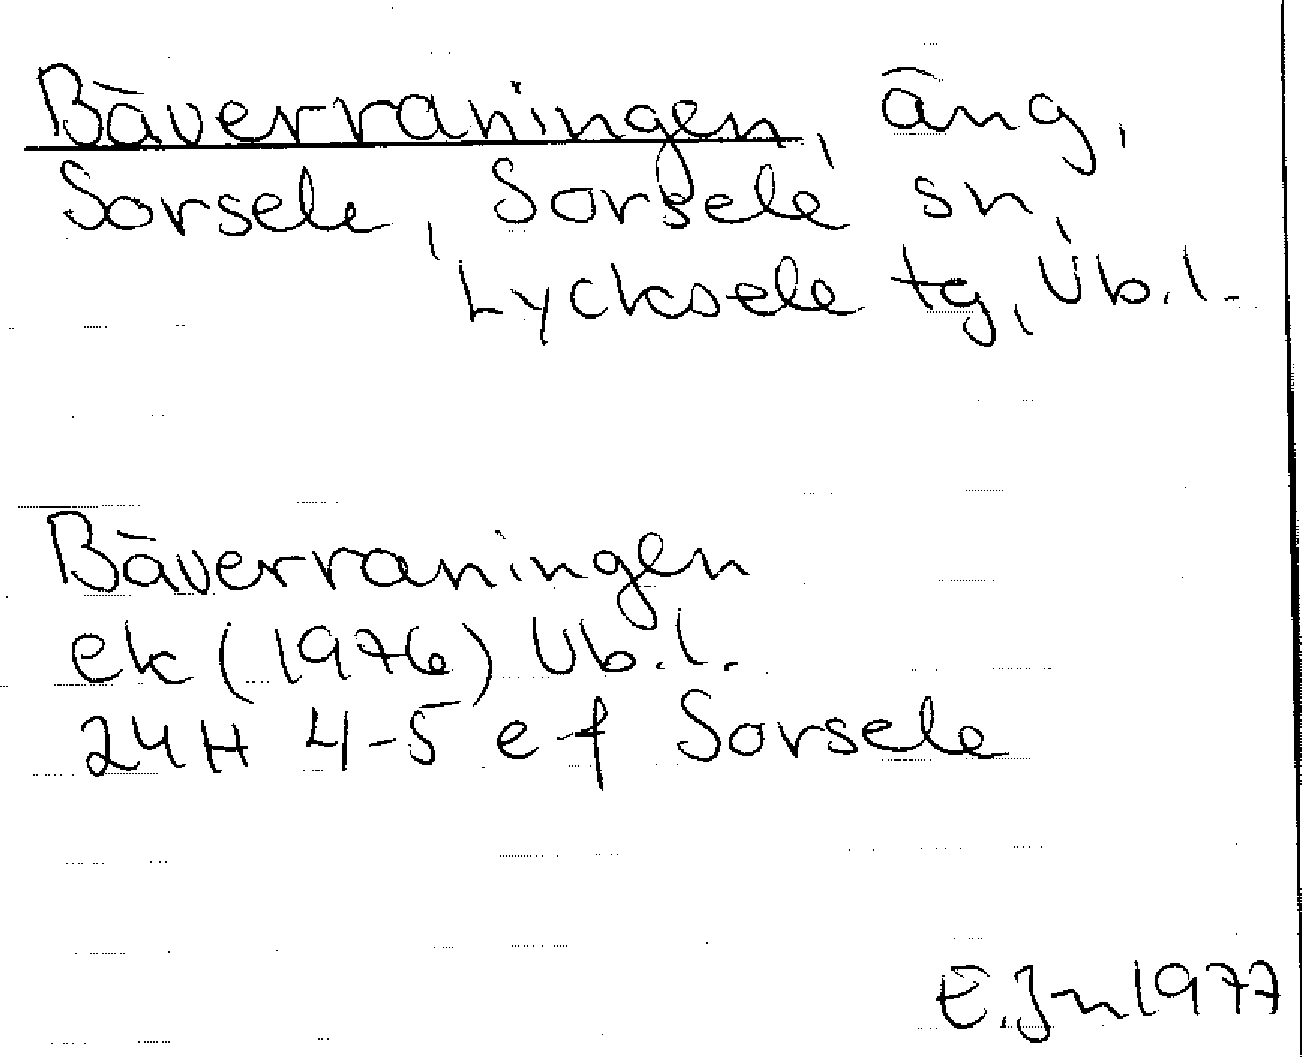 Bäverraningen, äng,
Sorsele, Sorsele sn,
Lycksele tg, Vb.l.
Bäverraningen
ek (1976) Vb.l.
24H 4-5 e-f Sorsele
E.Jn 1977